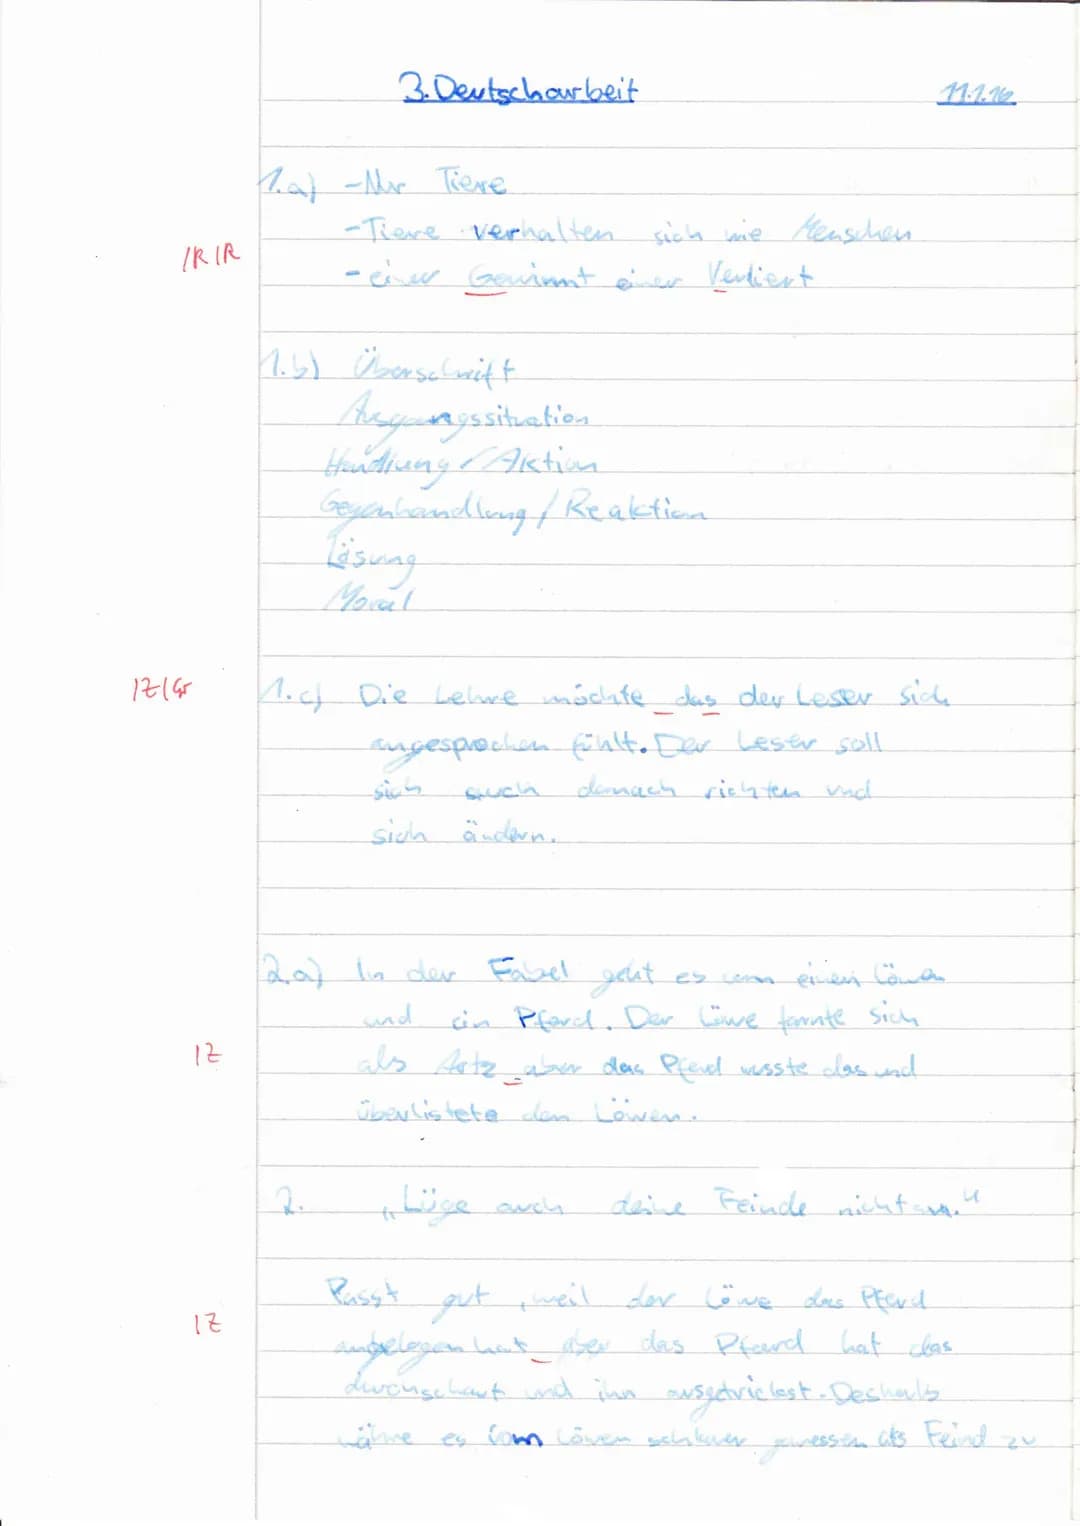 3. Deutscharbeit 11.1.16
1.a) -Nur Tiere
-Tiere verhalten sich wie Menschen
/R/R
-einer Gewinnt einer Verliert
1.b) Überschrift
Ausgangssituation
Handlung / Aktion
Gegenhandlung / Reaktion
Lösung
Moral
/Z/Gr 1.c) Die Lehre möchte das der Leser sich
angesprochen fühlt. Der Leser soll
sich auch danach richten und
sich ändern.
2.a) In der Fabel geht es um einen Löwen
und ein Pferd. Der Löwe tarnte sich
/Z als Artz aber das Pferd wusste das und
überlistete den Löwen.
2. „Lüge auch deine Feinde nicht an."
Passt gut, weil der Löwe das Pferd
/Z angelogen hat aber das Pferd hat das
durchschaut und ihn ausgetrickst. Deshalb
währe es vom Löwen schlauer gewessen als Feind zu